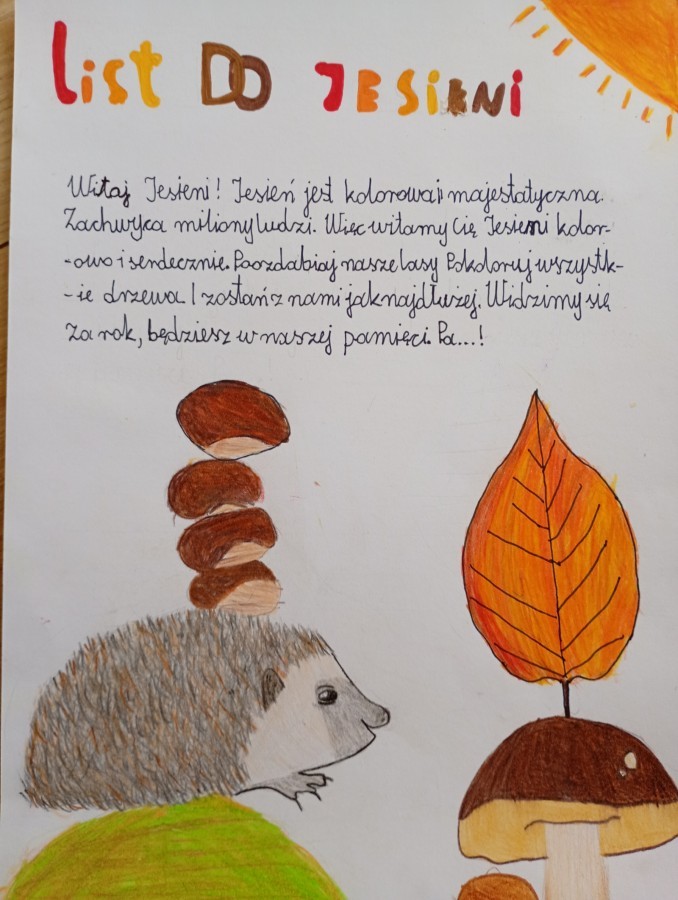 List DO JESiENi
Witaj Jesieni! Jesień jest kolorowa i majestatyczna.
Zachwyca miliony ludzi. Więc witamy Cię Jesieni kolor-
-owo i serdecznie. Poozdabiaj nasze lasy Pokoloruj wszystk-
-ie drzewa I zostań z nami jak najdłużej. Widzimy się
za rok, będziesz w naszej pamięci. Pa...!